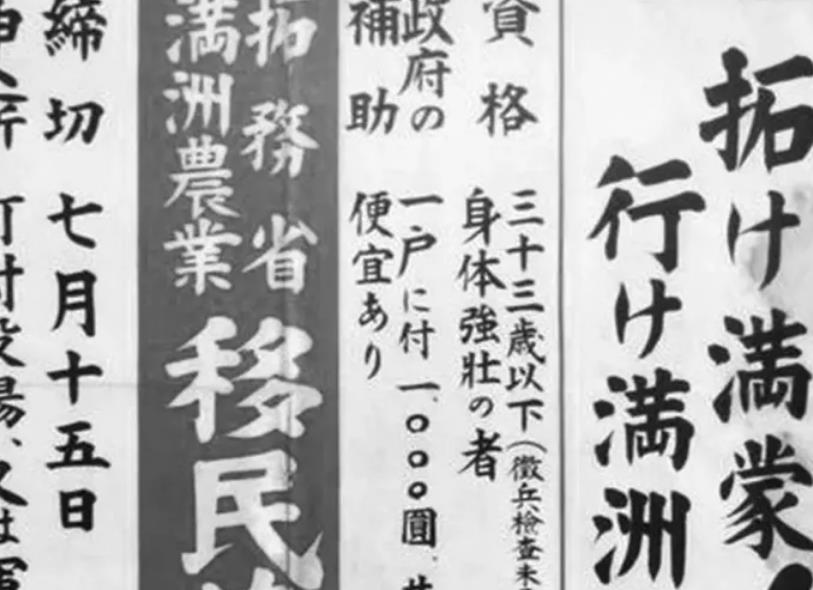 拓け満蒙
行け満洲
資格
三十三歳以下(徴兵検査未
身体強壮の者
政府の
補助
一戸に付一、〇〇〇圓、
便宜あり
拓務省
満洲農業
移民
締切 七月十五日
町村役場、又は